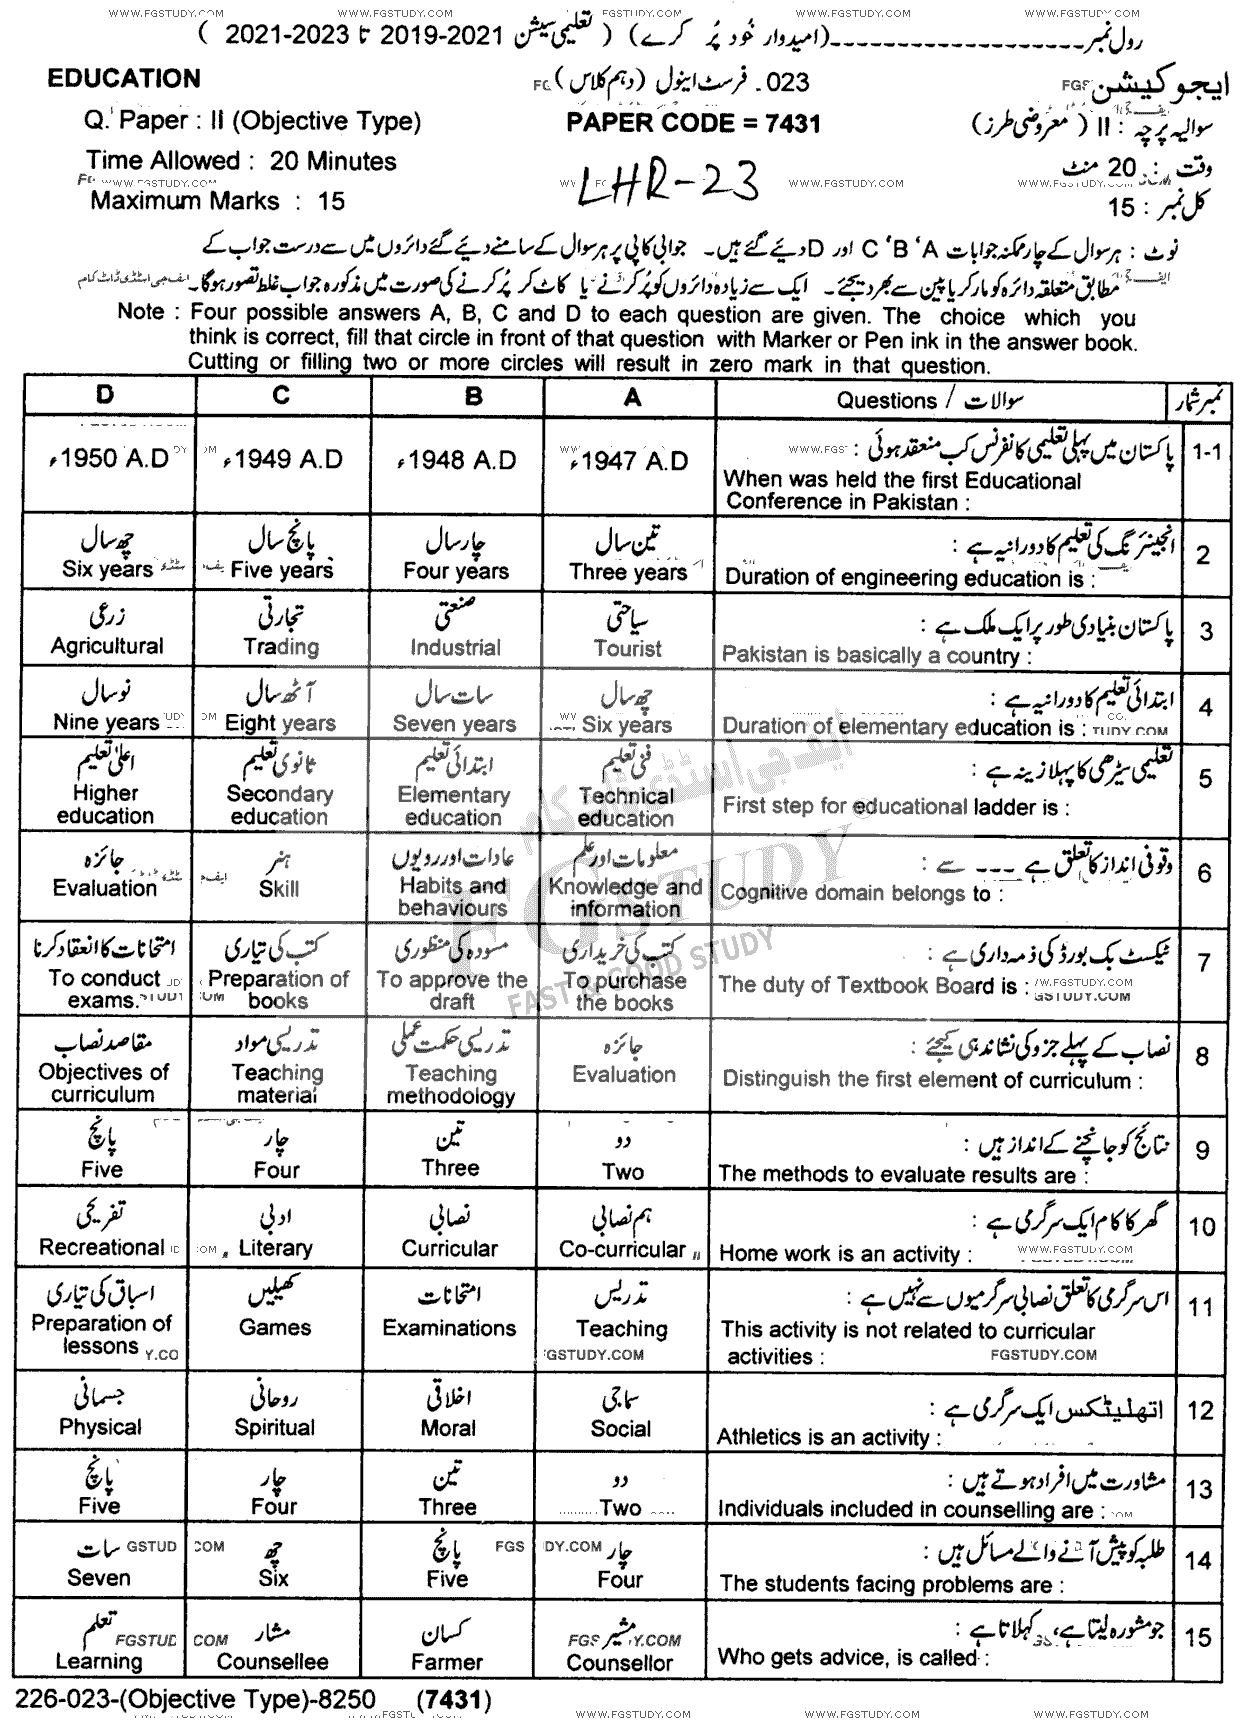 WWW.FGSTUDY.COM
رول نمبر ـــــــــــــــــــــ (امیدوار خود پُر کرے) ( تعلیمی سیشن 2021-2019 تا 2023-2021 )
EDUCATION 023ـ فرسٹ اینول (دہم کلاس) ایجوکیشن
Q. Paper : II (Objective Type) PAPER CODE = 7431 سوالیہ پرچہ : II ( معروضی طرز)
Time Allowed : 20 Minutes LHR-23 وقت : 20 منٹ
WWW.FGSTUDY.COM
Maximum Marks : 15 کل نمبر : 15
نوٹ : ہر سوال کے چار ممکنہ جوابات A ‘B ‘C اور D دیئے گئے ہیں۔ جوابی کاپی پر ہر سوال کے سامنے دیئے گئے دائروں میں سے درست جواب کے
مطابق متعلقہ دائرہ کو مارکر یا پین سے بھر دیجئے۔ ایک سے زیادہ دائروں کو پُر کرنے یا کاٹ کر پُر کرنے کی صورت میں مذکورہ جواب غلط تصور ہوگا۔
Note : Four possible answers A, B, C and D to each question are given. The choice which you
think is correct, fill that circle in front of that question with Marker or Pen ink in the answer book.
Cutting or filling two or more circles will result in zero mark in that question.
D C B A Questions / سوالات نمبر شمار
1-1 پاکستان میں پہلی تعلیمی کانفرنس کب منعقد ہوئی :
When was held the first Educational
Conference in Pakistan :
1947 A.D ء 1948 A.D ء 1949 A.D ء 1950 A.D ء
2 انجینئرنگ کی تعلیم کا دورانیہ ہے :
Duration of engineering education is :
تین سال چار سال پانچ سال چھ سال
Three years Four years Five years Six years
3 پاکستان بنیادی طور پر ایک ملک ہے :
Pakistan is basically a country :
سیاحتی صنعتی تجارتی زرعی
Tourist Industrial Trading Agricultural
4 ابتدائی تعلیم کا دورانیہ ہے :
Duration of elementary education is :
چھ سال سات سال آٹھ سال نو سال
Six years Seven years Eight years Nine years
5 تعلیمی سیڑھی کا پہلا زینہ ہے :
First step for educational ladder is :
فنی تعلیم ابتدائی تعلیم ثانوی تعلیم اعلیٰ تعلیم
Technical education Elementary education Secondary education Higher education
6 وقوفی انداز کا تعلق ہے ۔۔۔ سے :
Cognitive domain belongs to :
معلومات اور علم عادات اور رویوں ہنر جائزہ
Knowledge and information Habits and behaviours Skill Evaluation
7 ٹیکسٹ بک بورڈ کی ذمہ داری ہے :
The duty of Textbook Board is :
کتب کی خریداری مسودہ کی منظوری کتب کی تیاری امتحانات کا انعقاد کرنا
To purchase the books To approve the draft Preparation of books To conduct exams.
8 نصاب کے پہلے جزو کی نشاندہی کیجئے :
Distinguish the first element of curriculum :
جائزہ تدریسی حکمت عملی تدریسی مواد مقاصد نصاب
Evaluation Teaching methodology Teaching material Objectives of curriculum
9 نتائج کو جانچنے کے انداز ہیں :
The methods to evaluate results are :
دو تین چار پانچ
Two Three Four Five
10 گھر کا کام ایک سرگرمی ہے :
Home work is an activity :
ہم نصابی نصابی ادبی تفریحی
Co-curricular Curricular Literary Recreational
11 اس سرگرمی کا تعلق نصابی سرگرمیوں سے نہیں ہے :
This activity is not related to curricular
activities :
تدریس امتحانات کھیلیں اسباق کی تیاری
Teaching Examinations Games Preparation of lessons
12 اتھلیٹکس ایک سرگرمی ہے :
Athletics is an activity :
سماجی اخلاقی روحانی جسمانی
Social Moral Spiritual Physical
13 مشاورت میں افراد ہوتے ہیں :
Individuals included in counselling are :
دو تین چار پانچ
Two Three Four Five
14 طلبہ کو پیش آنے والے مسائل ہیں :
The students facing problems are :
چار پانچ چھ سات
Four Five Six Seven
15 جو مشورہ لیتا ہے، کہلاتا ہے :
Who gets advice, is called :
مشیر کسان مشار تعلم
Counsellor Farmer Counsellee Learning
ایف جی اسٹڈی ڈاٹ کام
FG STUDY ®
FAST & GOOD STUDY
226-023-(Objective Type)-8250 (7431)
WWW.FGSTUDY.COM